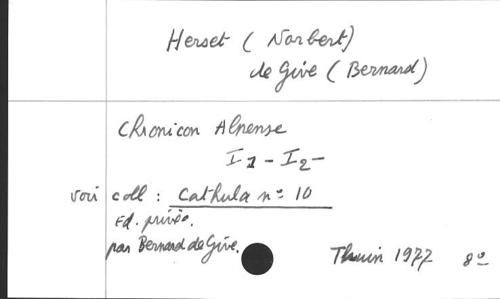 Herset ( Norbert)
de Give ( Bernard)
Chronicon Alnense
I1 - I2 -
voir coll : Cathula n° 10
Ed. privée.
par Bernard de Give.
Thuin 1977 8°